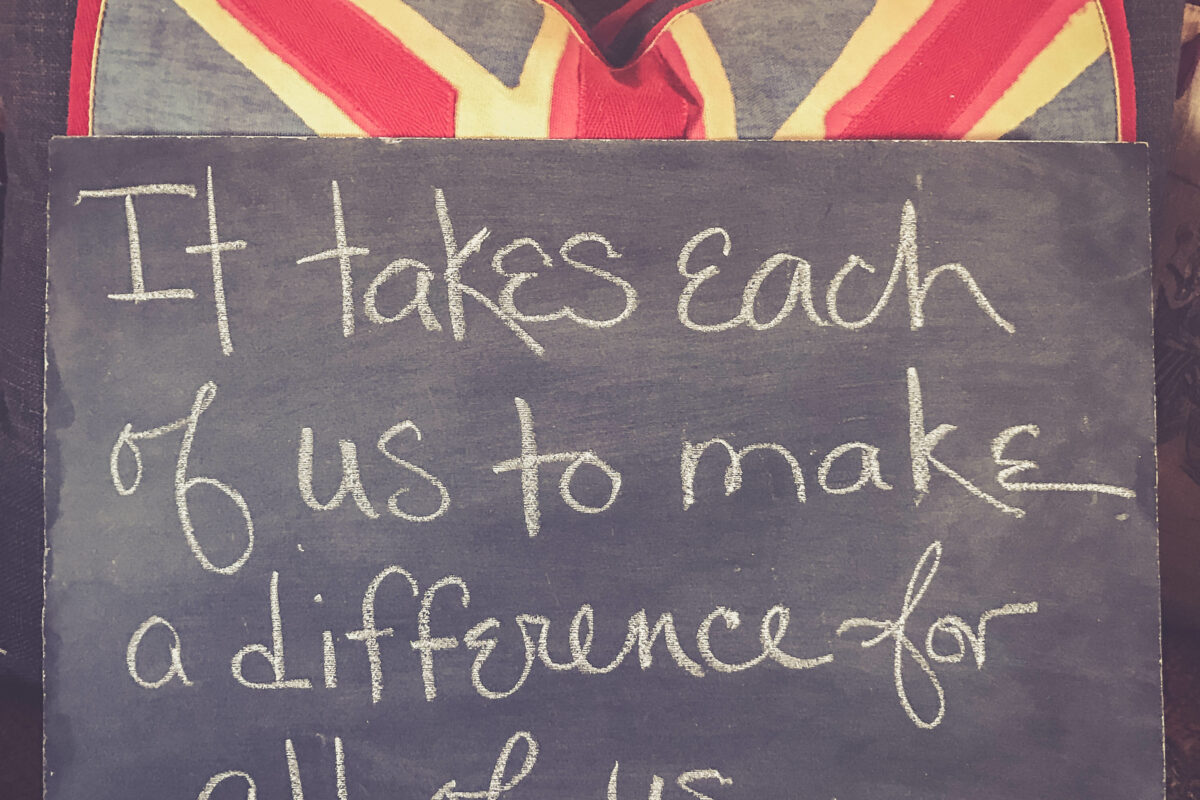 It takes each
of us to make
a difference for
all of us